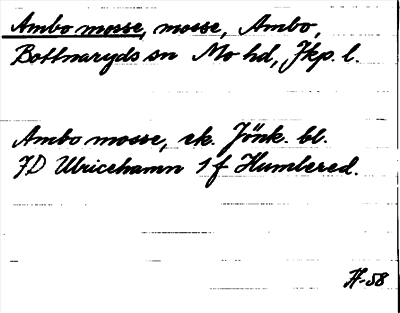 Ambo mosse, mosse, Ambo,
Bottnaryds sn Mo hd, Jkp. l.
Ambo mosse, ek. Jönk. bl.
7D Ulricehamn 1 f Humlered.
H-58